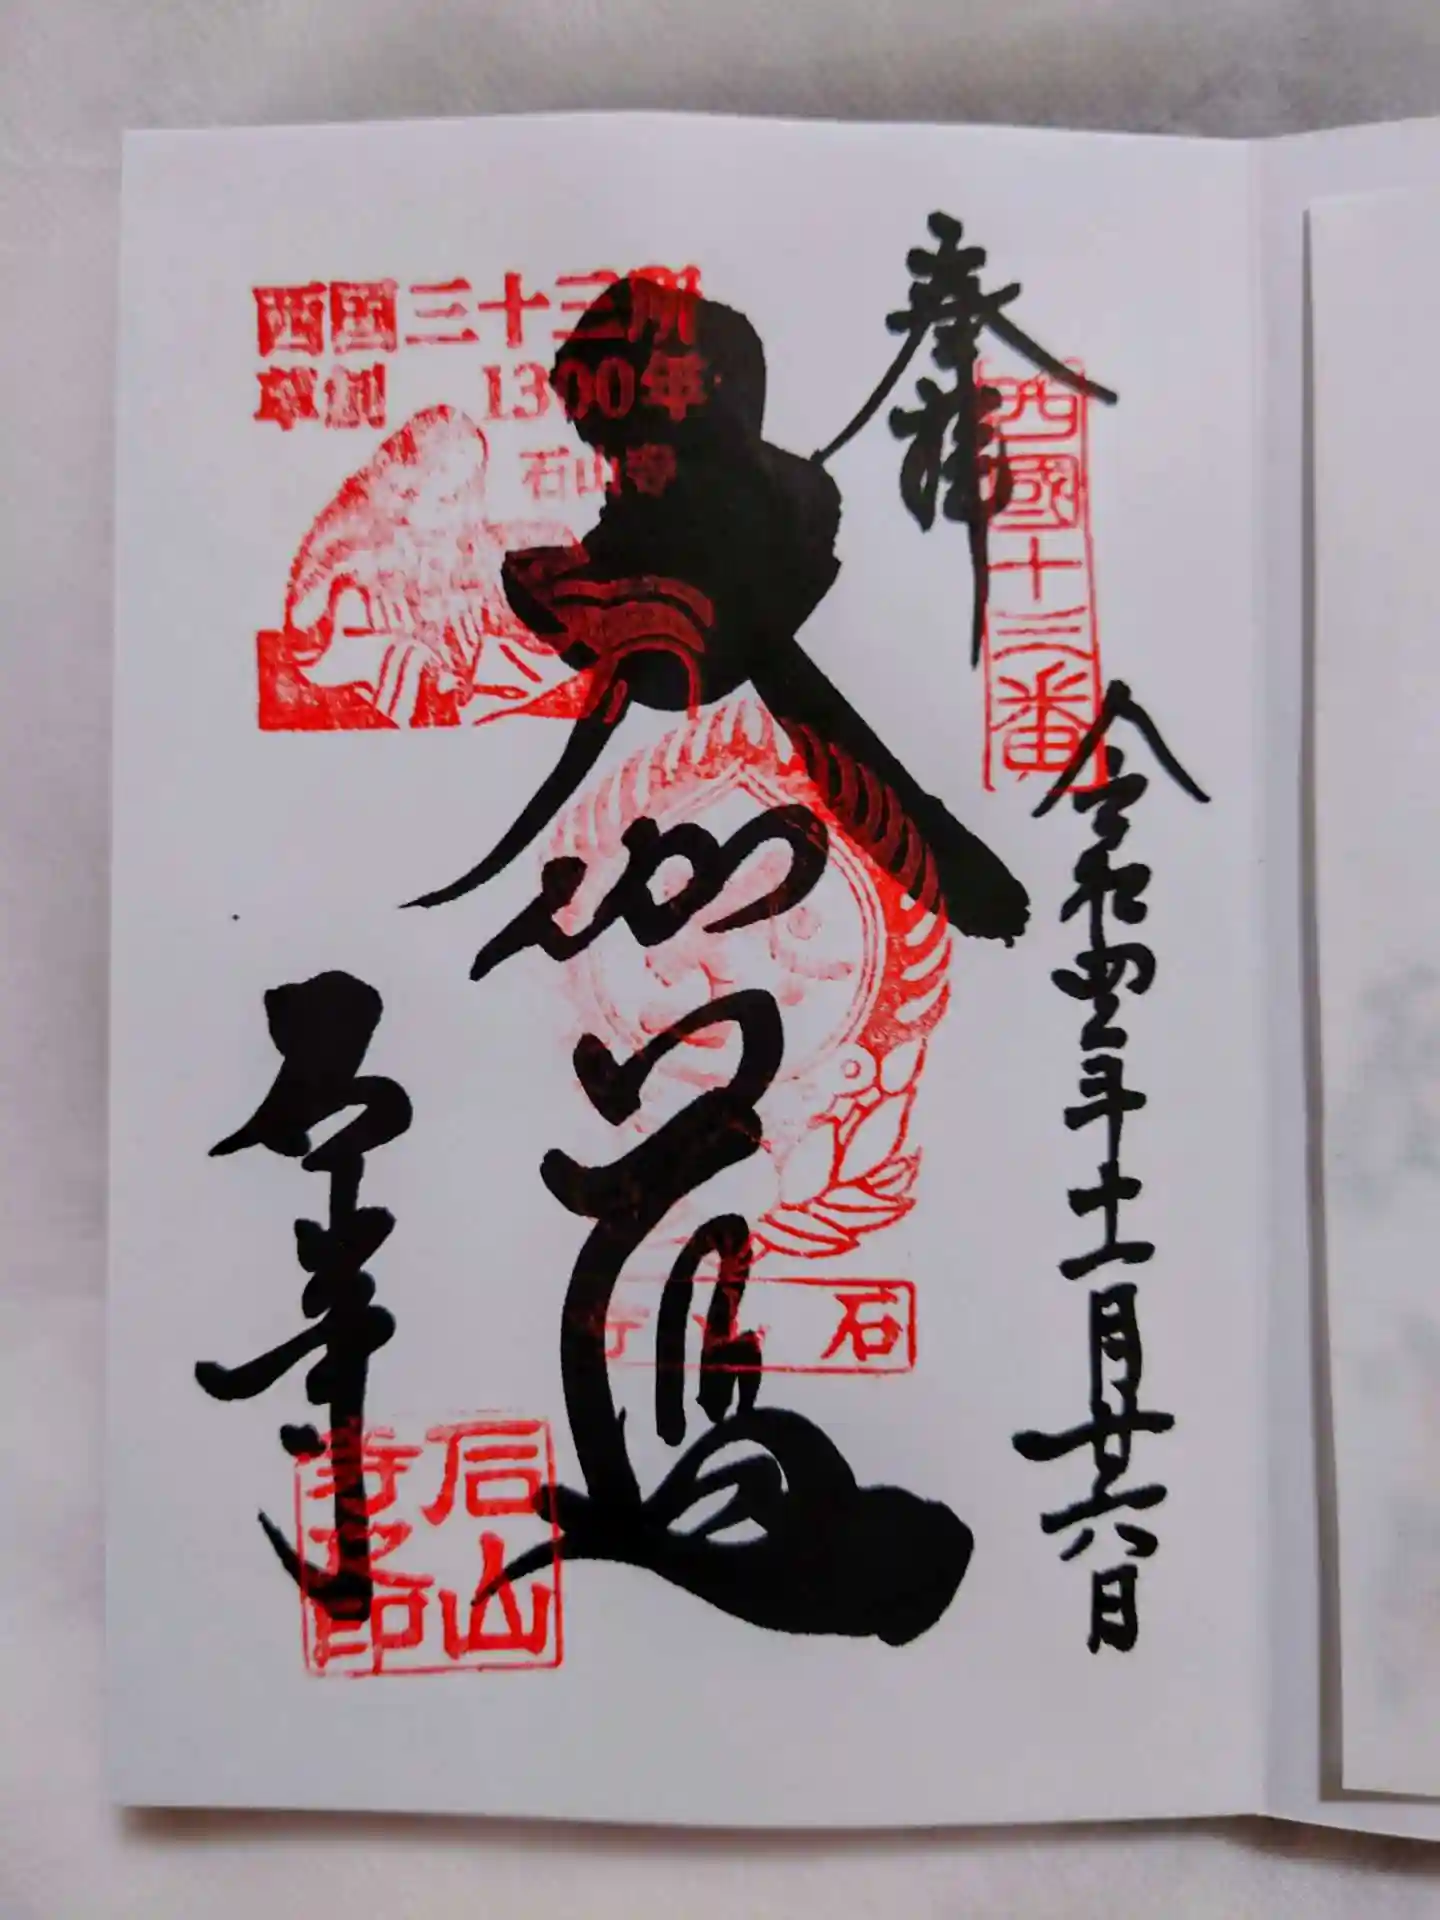 奉拝
西國十三番
令和四年十一月廿六日
大伽藍
西国三十三所
草創 1300年
石山寺
石山寺
石山寺
石山寺之印